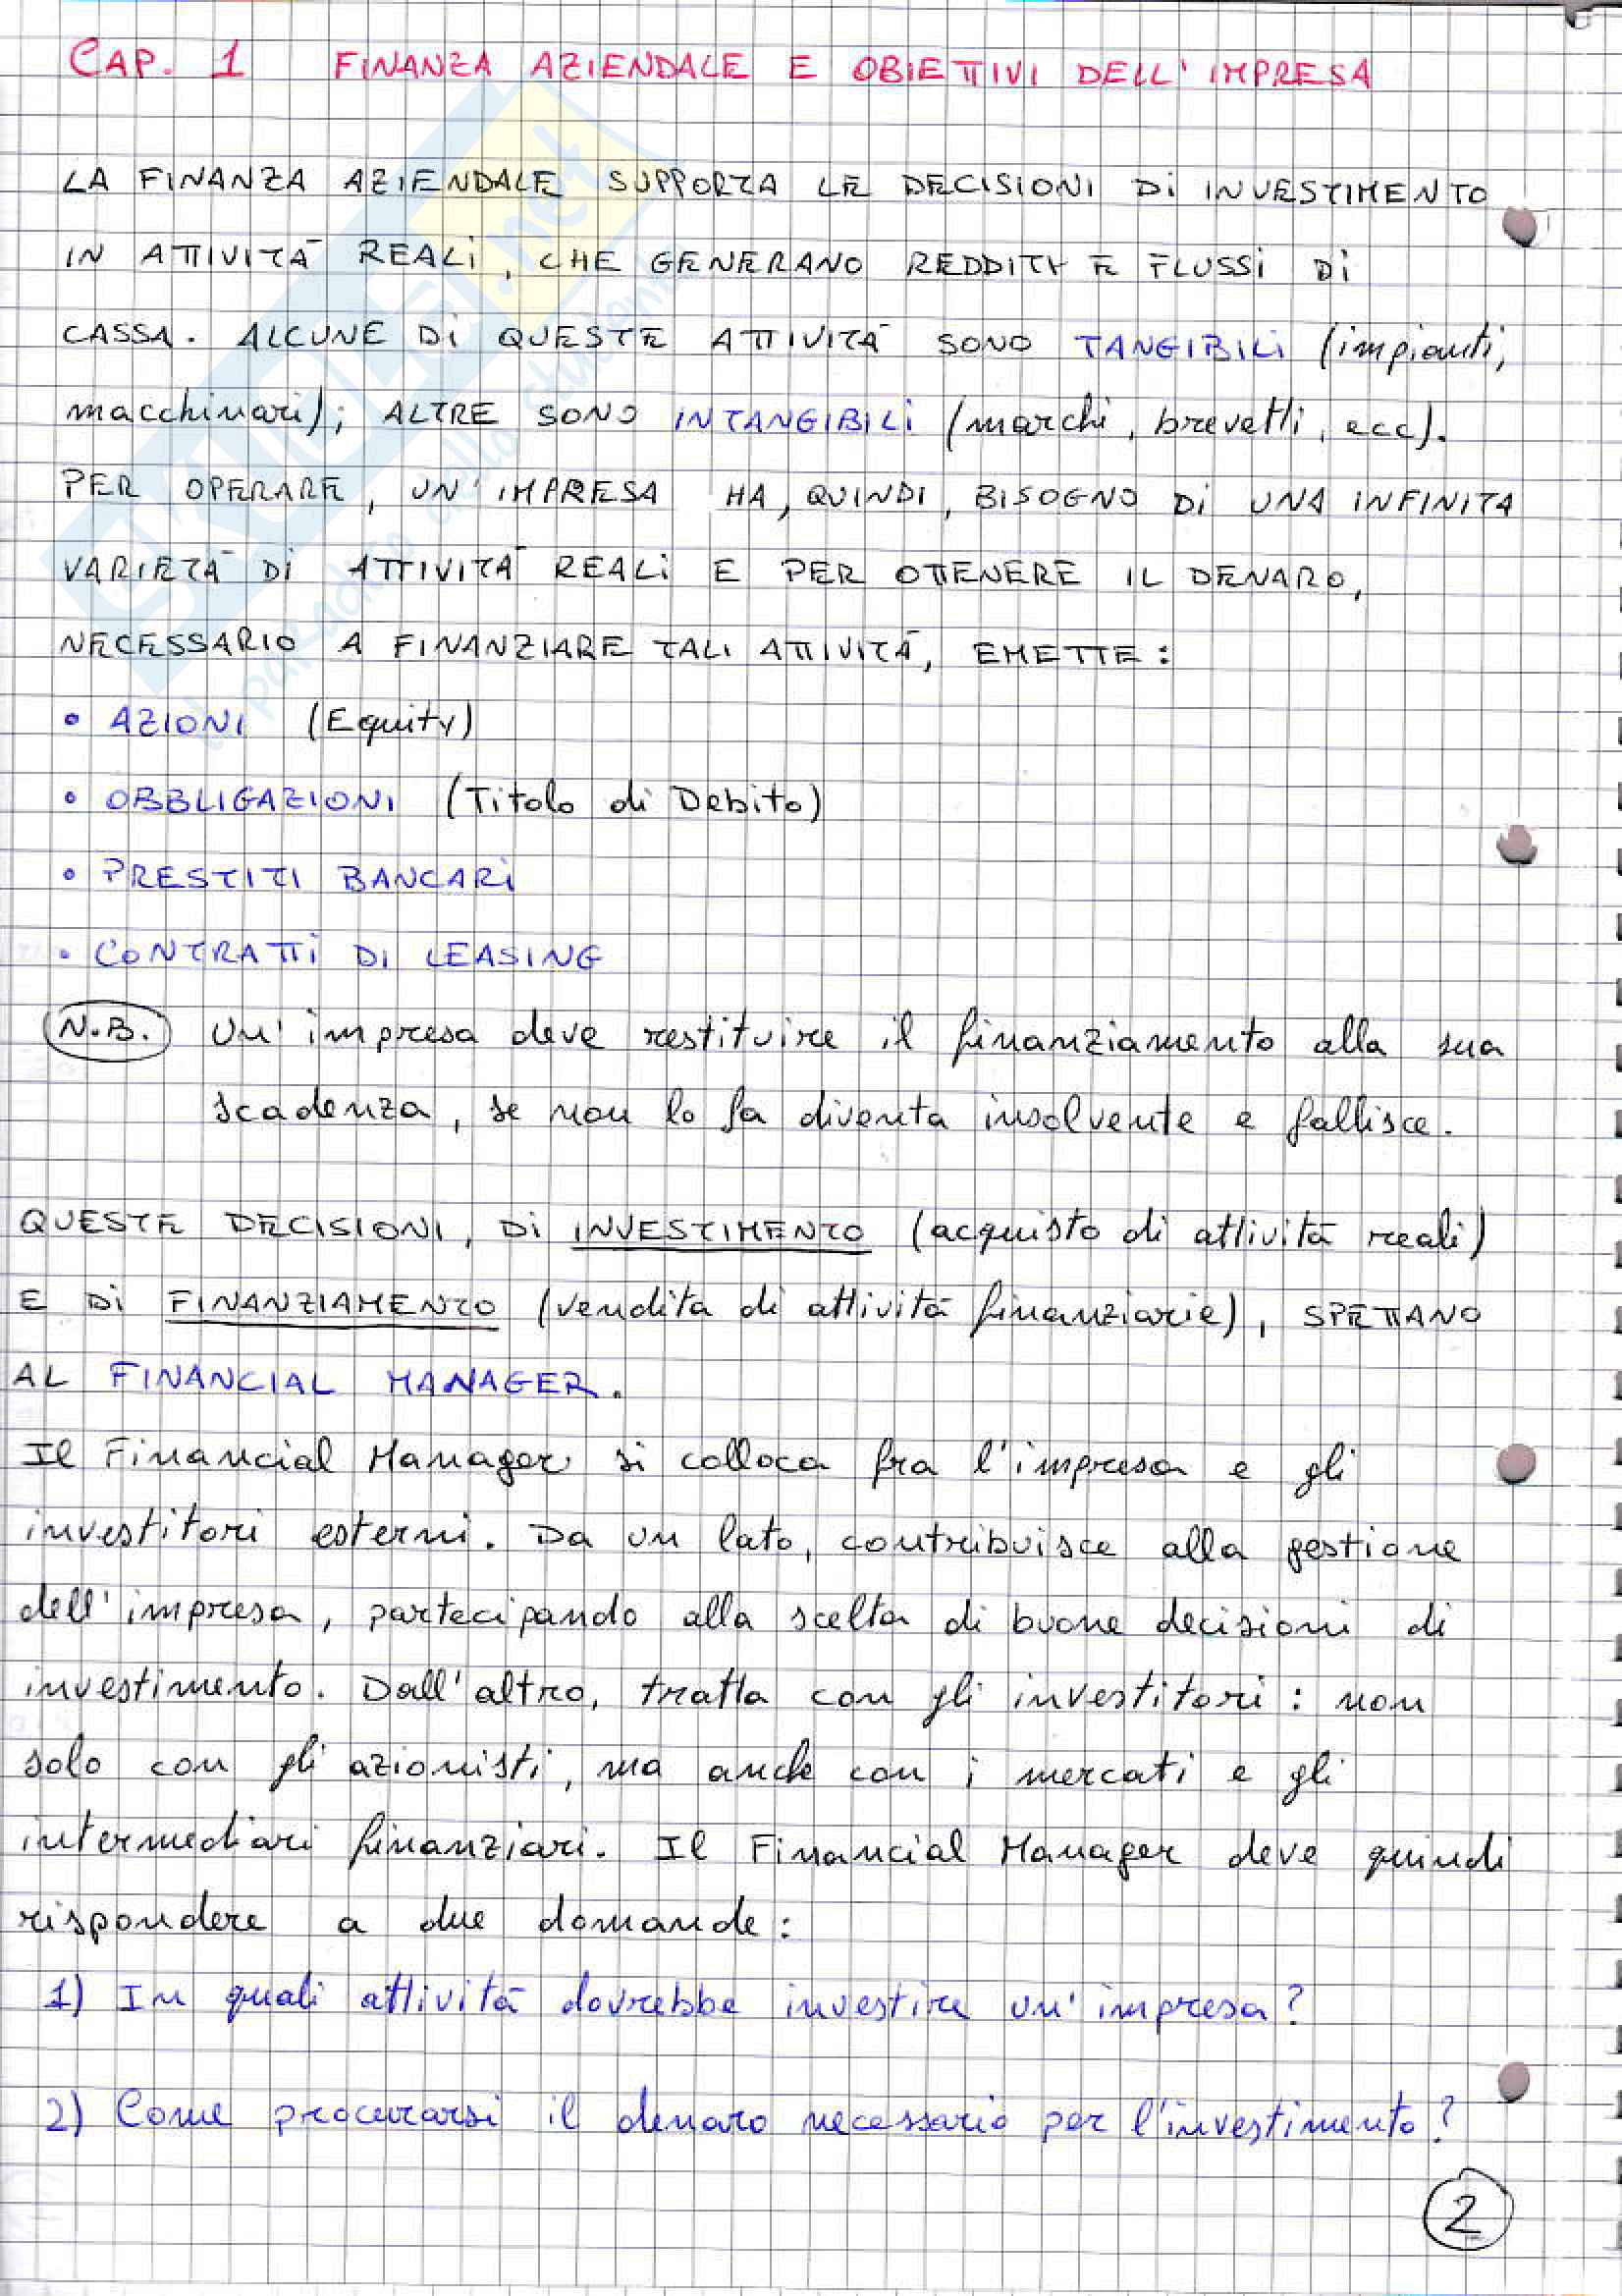 CAP. 1 FINANZA AZIENDALE E OBIETTIVI DELL'IMPRESA
LA FINANZA AZIENDALE SUPPORTA LE DECISIONI Di INVESTIMENTO
IN ATTIVITÀ REALi, CHE GENERANO REDDITI E FLUSSi Di
CASSA. ALCUNE Di QUESTE ATTIVITÀ SONO TANGIBILi (impianti,
macchinari); ALTRE SONO INTANGIBILi (marchi, brevetti, ecc).
PER OPERARE, UN'IMPRESA HA, QUINDI, BISOGNO Di UNA INFINITA
VARIETÀ Di ATTIVITÀ REALi E PER OTTENERE IL DENARO,
NECESSARIO A FINANZIARE TALI ATTIVITÀ, EMETTE:
• AZIONI (Equity)
• OBBLIGAZIONI (Titolo di Debito)
• PRESTITI BANCARi
• CONTRATTi DI LEASING
N.B. Un'impresa deve restituire il finanziamento alla sua
scadenza, se non lo fa diventa insolvente e fallisce.
QUESTE DECISIONI, Di INVESTIMENTO (acquisto di attività reali)
E Di FINANZIAMENTO (vendita di attività finanziarie), SPETTANO
AL FINANCIAL MANAGER.
Il Financial Manager si colloca fra l'impresa e gli
investitori esterni. Da un lato, contribuisce alla gestione
dell'impresa, partecipando alla scelta di buone decisioni di
investimento. Dall'altro, tratta con gli investitori: non
solo con gli azionisti, ma anche con i mercati e gli
intermediari finanziari. Il Financial Manager deve quindi
rispondere a due domande:
1) In quali attività dovrebbe investire un'impresa?
2) Come procurarsi il denaro necessario per l'investimento?
2
SKUOLA.net